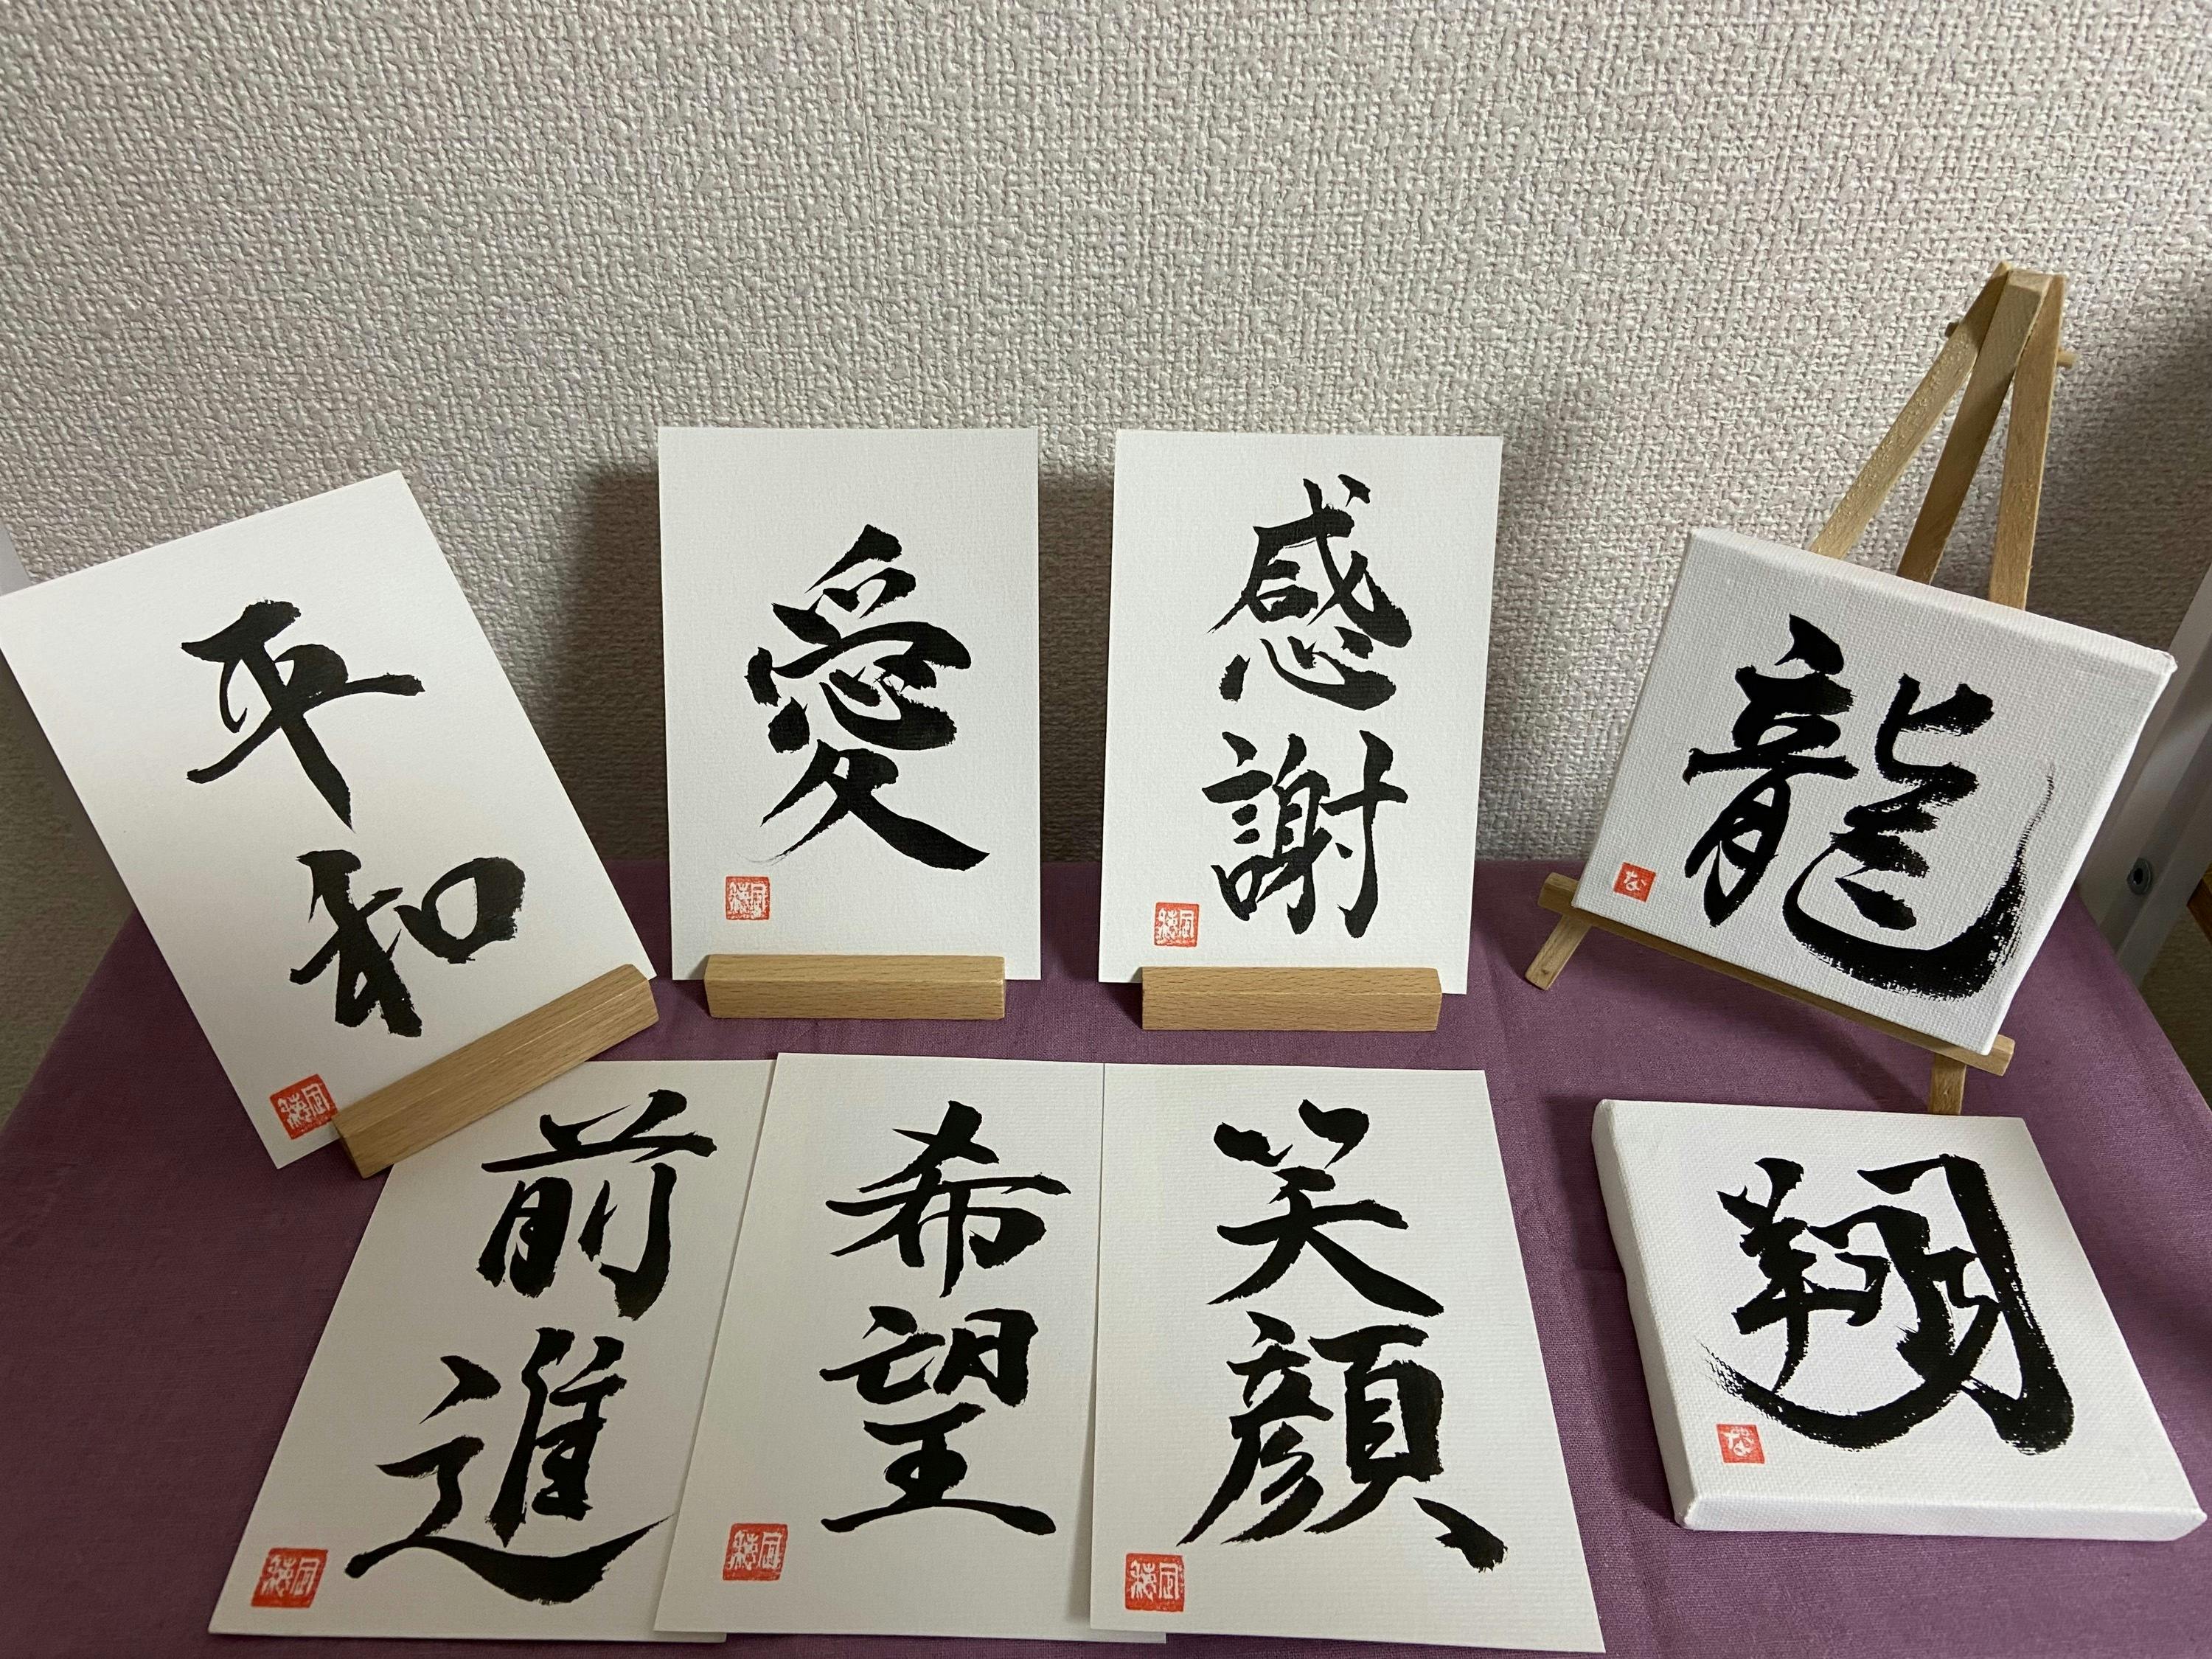 平和
愛
感謝
龍
前進
希望
笑顔
翔
な
な